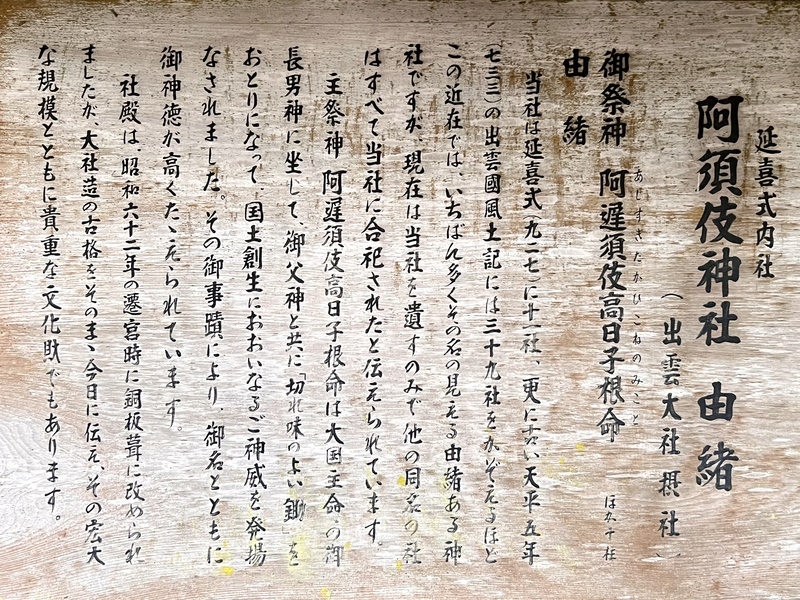 延喜式内社
阿須伎神社 由緒
（出雲大社 摂社）
御祭神 阿遅須伎高日子根命 ほか十柱
あじすきたかひこねのみこと
由緒
当社は延喜式(九二七)に十一社、更に古い天平五年
(七三三)の出雲國風土記には三十九社をかぞえるほど
この近在では、いちばん多くその名の見える由緒ある神
社ですが、現在は当社を遺すのみで他の同名の社
はすべて当社に合祀されたと伝えられています。
主祭神 阿遅須伎高日子根命は大国主命の御
長男神に坐して、御父神と共に「切れ味のよい鋤」を
おとりになって、国土創生におおいなるご神威を発揚
なされました。その御事蹟により、御名とともに
御神徳が高くたゝえられています。
社殿は、昭和六十二年の遷宮時に銅板葺に改められ
ましたが、大社造の古格をそのまゝ今日に伝え、その宏大
な規模とともに貴重な文化財でもあります。